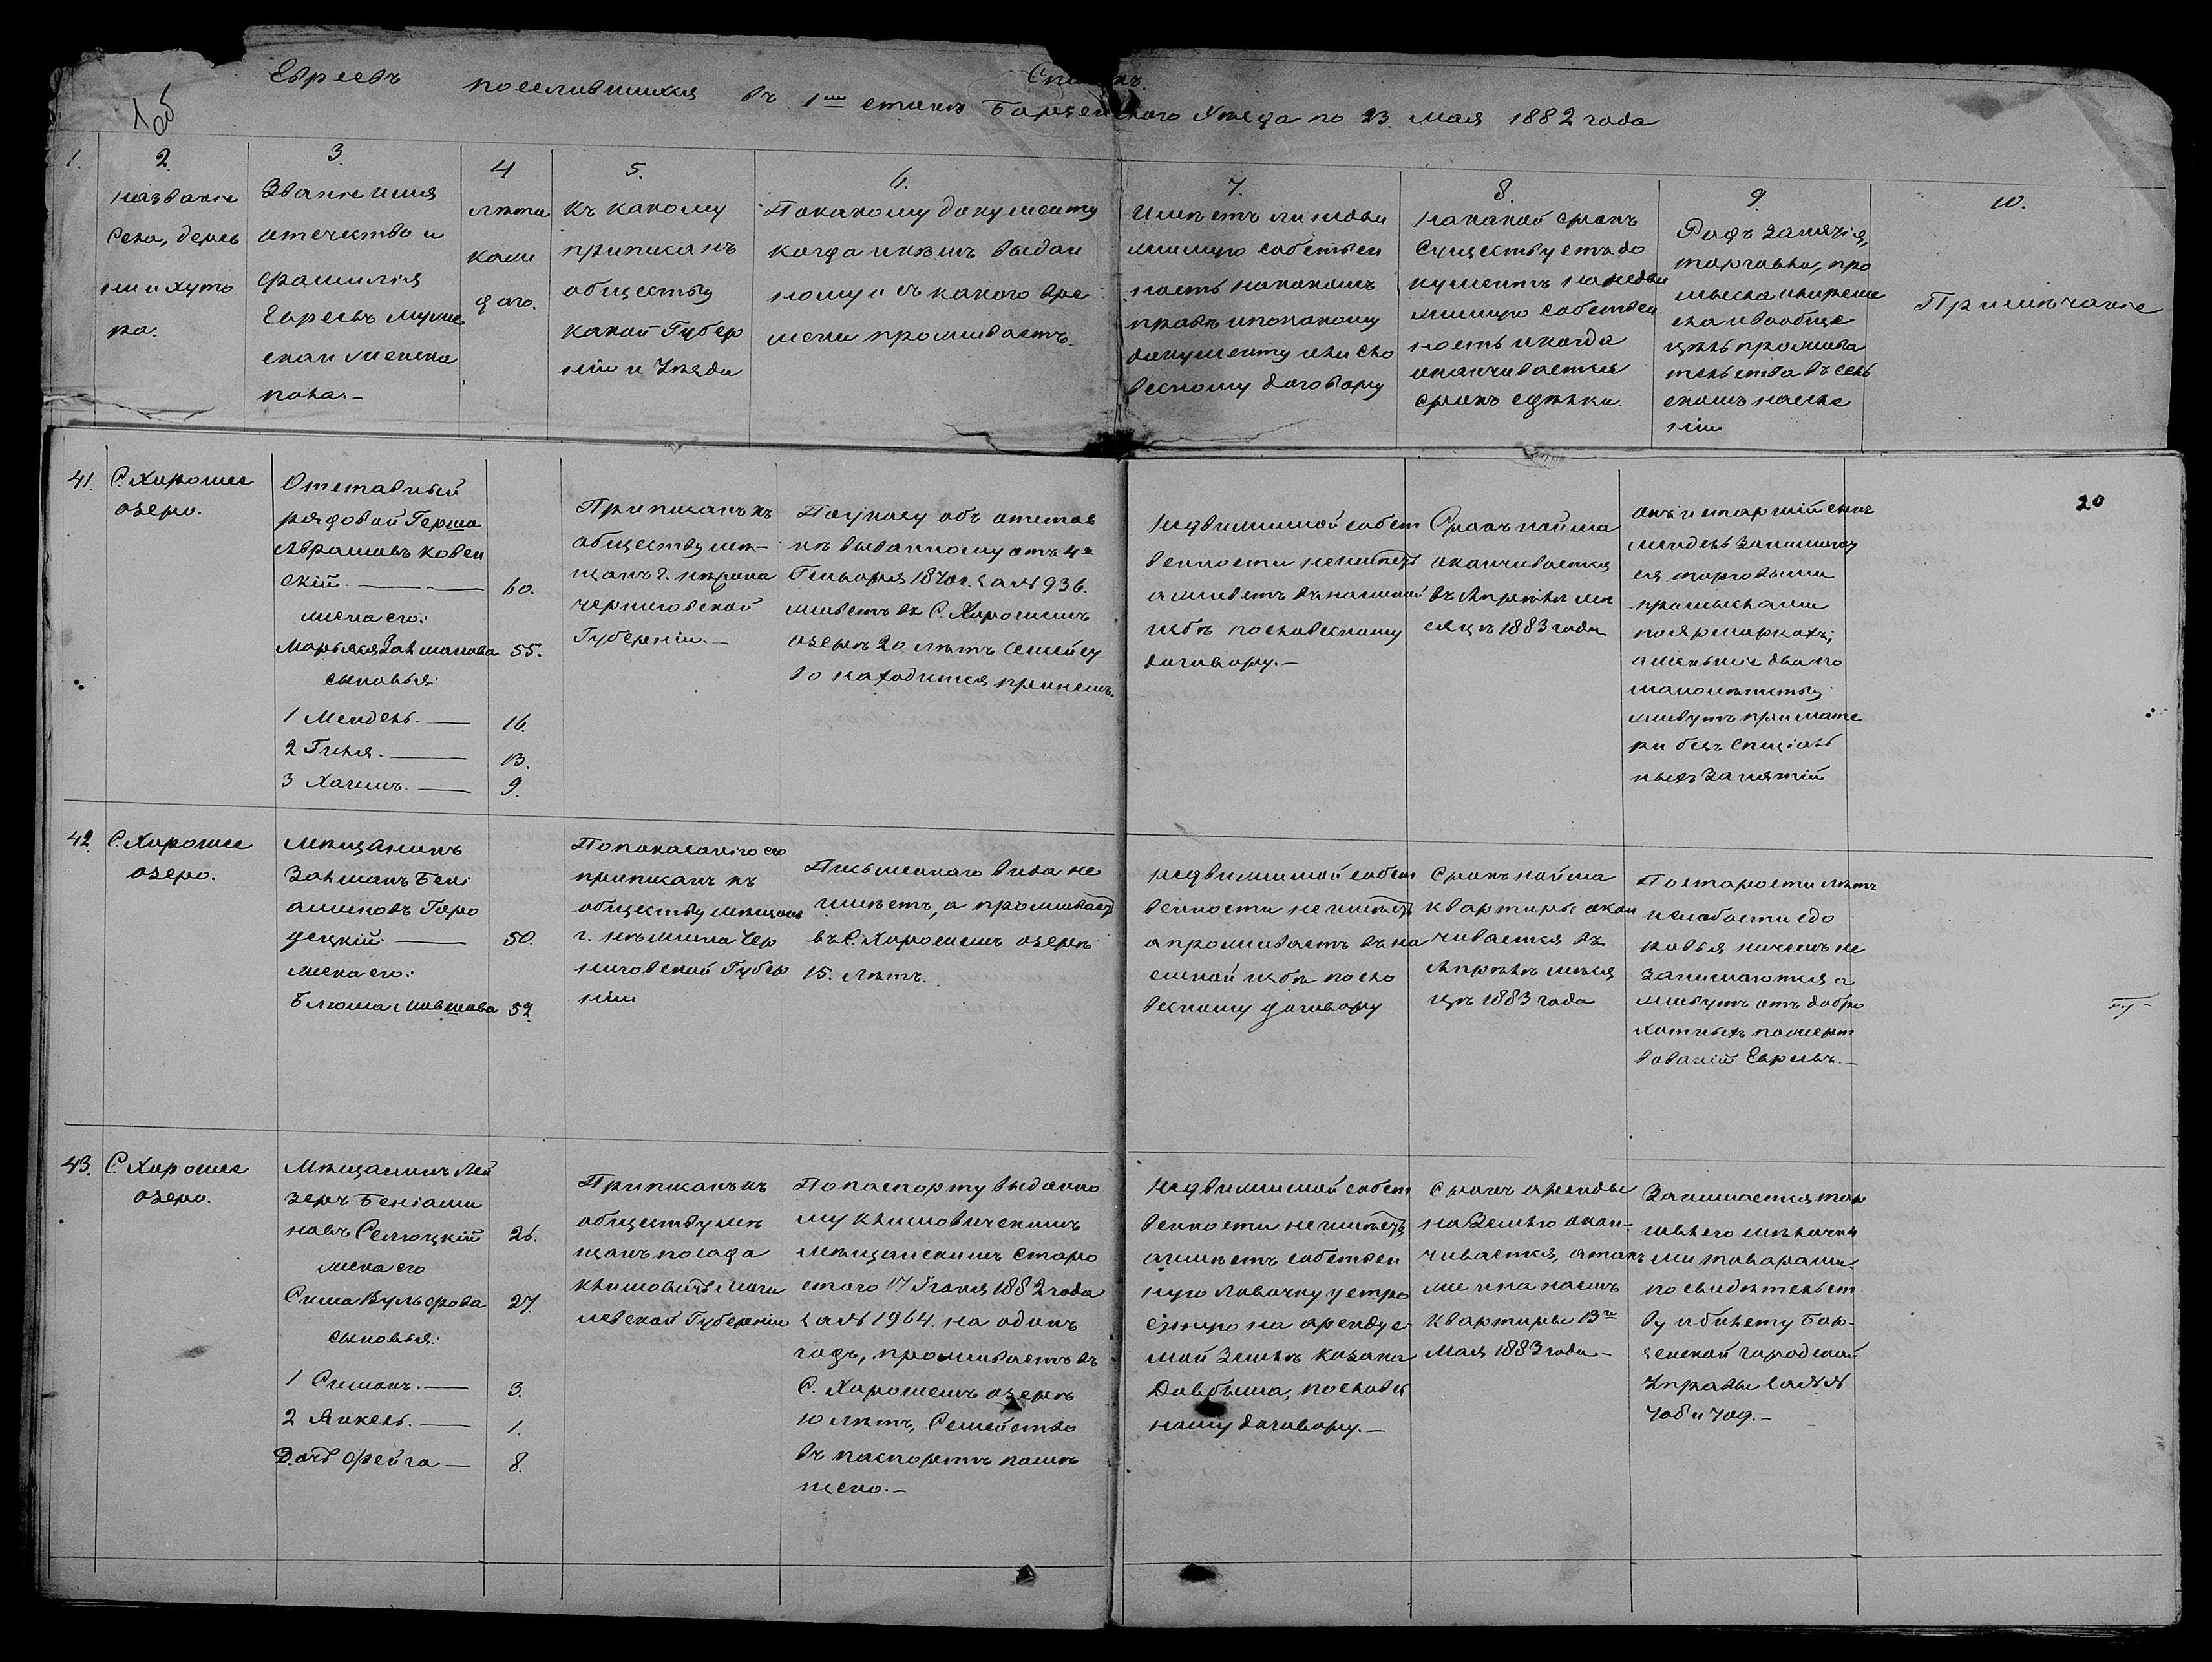 Списокъ
Евреевъ поселившихся въ 1мъ станѣ Борзенского Уѣзда по 23 мая 1882 года
1об
1.
2.
Названіе
Села, дерев
ни и хуто
ра.
3.
Званіе имя
отечество и
фамилія
Евреевъ муже
скаго и женска
пола.-
4
лѣта
каж
даго.
5.
къ какому
приписанъ
обществу
какой Губер
ніи и Уѣзда
6.
По какому документу
когда и кѣмъ выдан
ному и съ какого вре
мени проживаетъ.
7.
Имѣетъ ли недви
жимую собствен
ность на какомъ
правѣ и по какому
документу или сло
весному договору
8.
На какой срокъ
Существуетъ до
кументъ на недви
жимую собствен
ность и когда
оканчивается
срокъ сдѣлки.
9.
Родъ занятія,
торговли, про
мысла и ремe
сла и вообще
цѣль прожива
тельства въ сель
скомъ населе
ніи
10.
Примѣчаніе
41.
С. Хорошее
озеро.
Отставный
рядовой Герша
Абрамовъ Ковен
скій. — 60.
жена его:
Марьяся Залманова 55.
сыновья:
1 Мендель. — 16.
2 Гиля. — 13.
3 Хаимъ. — 9.
Приписанъ къ
обществу мѣ-
щанъ г. нѣжина
черниговской
Губерніи.-
По указу объ отстав
кѣ выданному отъ 4го
Генваря 1840г. за № 936.
живетъ въ С. Хорошемъ
озерѣ 20 лѣтъ семейст
во находится при немъ.
недвижимой собст
венности не имѣетъ
а живетъ въ наемной
избѣ по словесному
договору.-
Срокъ найма
оканчивается
въ Апрѣлѣ мѣ
сяцѣ 1883 года
онъ и старшій сынъ
мендель занимают
ся торговыми
промыслами
по ярмаркахъ;
а меньшіе два по
малолѣтству
живутъ при мате
ри безъ спеціаль
ныхъ занятій
20
42.
С. Хорошее
озеро.
Мѣщанинъ
Залманъ Бені
аминовъ Горо
децкій — 50.
жена его:
Блюма Мовшова 52.
По показанію его
приписанъ къ
обществу мѣщанъ
г. нѣжина Чер
ниговской Губер
ніи
Письменнаго вида не
имѣетъ, а проживаетъ
въ С. Хорошемъ озерѣ
15. лѣтъ.
недвижимой собст
венности не имѣетъ
а проживаетъ въ на
емной избѣ по сло
весному договору
Срокъ найма
квартиры окан
чивается въ
Апрѣлѣ мѣся
цѣ 1883 года
По старости лѣтъ
и слабости здо
ровья ничемъ не
занимаются а
живутъ отъ добро
хотныхъ пожерт
вованій Евреевъ.-
43.
С. Хорошее
озеро.
Мѣщанинъ Лей
зеръ Беніами
новъ Селюцкій 26.
жена его
Сима Вульфова 27.
сыновья:
1 Симонъ. — 3.
2 Янкель. — 1.
Дочь Фейга — 8.
Приписанъ къ
обществу мѣ
щанъ посада
Климовичъ Моги
левской Губерніи
По паспорту выданно
му Климовическимъ
Мѣщанскимъ Старо
стою 17 Іюня 1882 года
за № 1964. на одинъ
годъ, проживаетъ въ
С. Хорошемъ озерѣ
10 лѣтъ, Семейство
въ паспортѣ помѣ
щено.-
недвижимой собст
венности не имѣетъ
а имѣетъ собствен
ную лавочку устро
енную на арендуе
мой землѣ козака
Довбыша, по словес
ному договору.-
Срокъ аренды
на землю окан-
чивается, а такъ
же и на наемъ
квартиры 13го
мая 1883 года -
Занимается тор
говлею мѣлочны
ми товарами
по свидѣтельст
ву и билету Бор-
зенской городской
Управы за №№
408 и 409.-